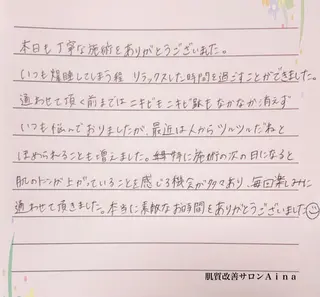 本日も丁寧な施術をありがとうございました。
いつも爆睡してしまう程リラックスした時間を過ごすことができました。
通わせて頂く前まではニキビもニキビ跡もなかなか消えず
いつも悩んでおりましたが、最近は人からツルツルだねと
ほめられることも増えました。特に施術の次の日になると
肌のトーンが上がっていることを感じる機会が多々あり、毎回楽しみに
通わせて頂きました。本当に素敵なお時間をありがとうございました
肌質改善サロンAina